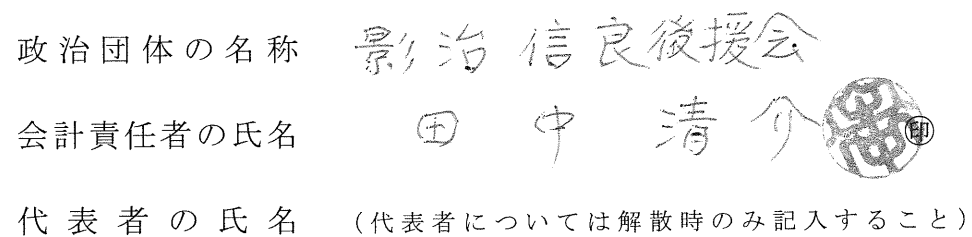 政治団体の名称 影治信良後援会
会計責任者の氏名 田中清介 ㊞
代表者の氏名 (代表者については解散時のみ記入すること)